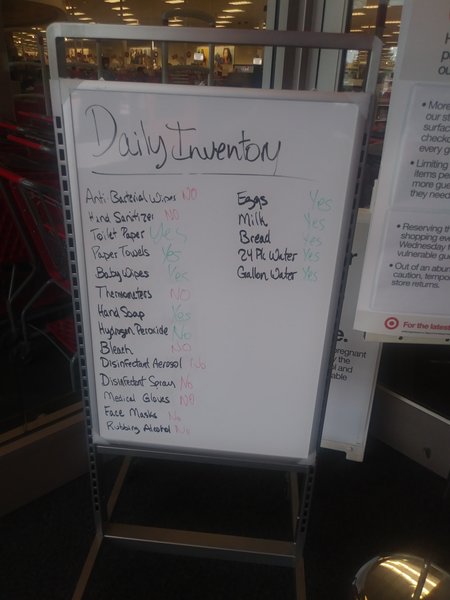 Daily Inventory
Anti Bacterial Wipes NO
Hand Sanitizer NO
Toilet Paper Yes
Paper Towels Yes
Baby Wipes Yes
Thermometers NO
Hand Soap Yes
Hydrogen Peroxide No
Bleach NO
Disinfectant Aerosol No
Disinfectant Spray No
Medical Gloves NO
Face Masks No
Rubbing Alcohol No
Eggs Yes
Milk Yes
Bread Yes
24 Pk Water Yes
Gallon Water Yes
• More
our st
surfac
checko
every g
• Limiting
items pe
more gue
they need
• Reserving th
shopping eve
Wednesday f
vulnerable gu
• Out of an abu
caution, tempo
store returns.
For the latest
e.
pregnant
y the
l and
able